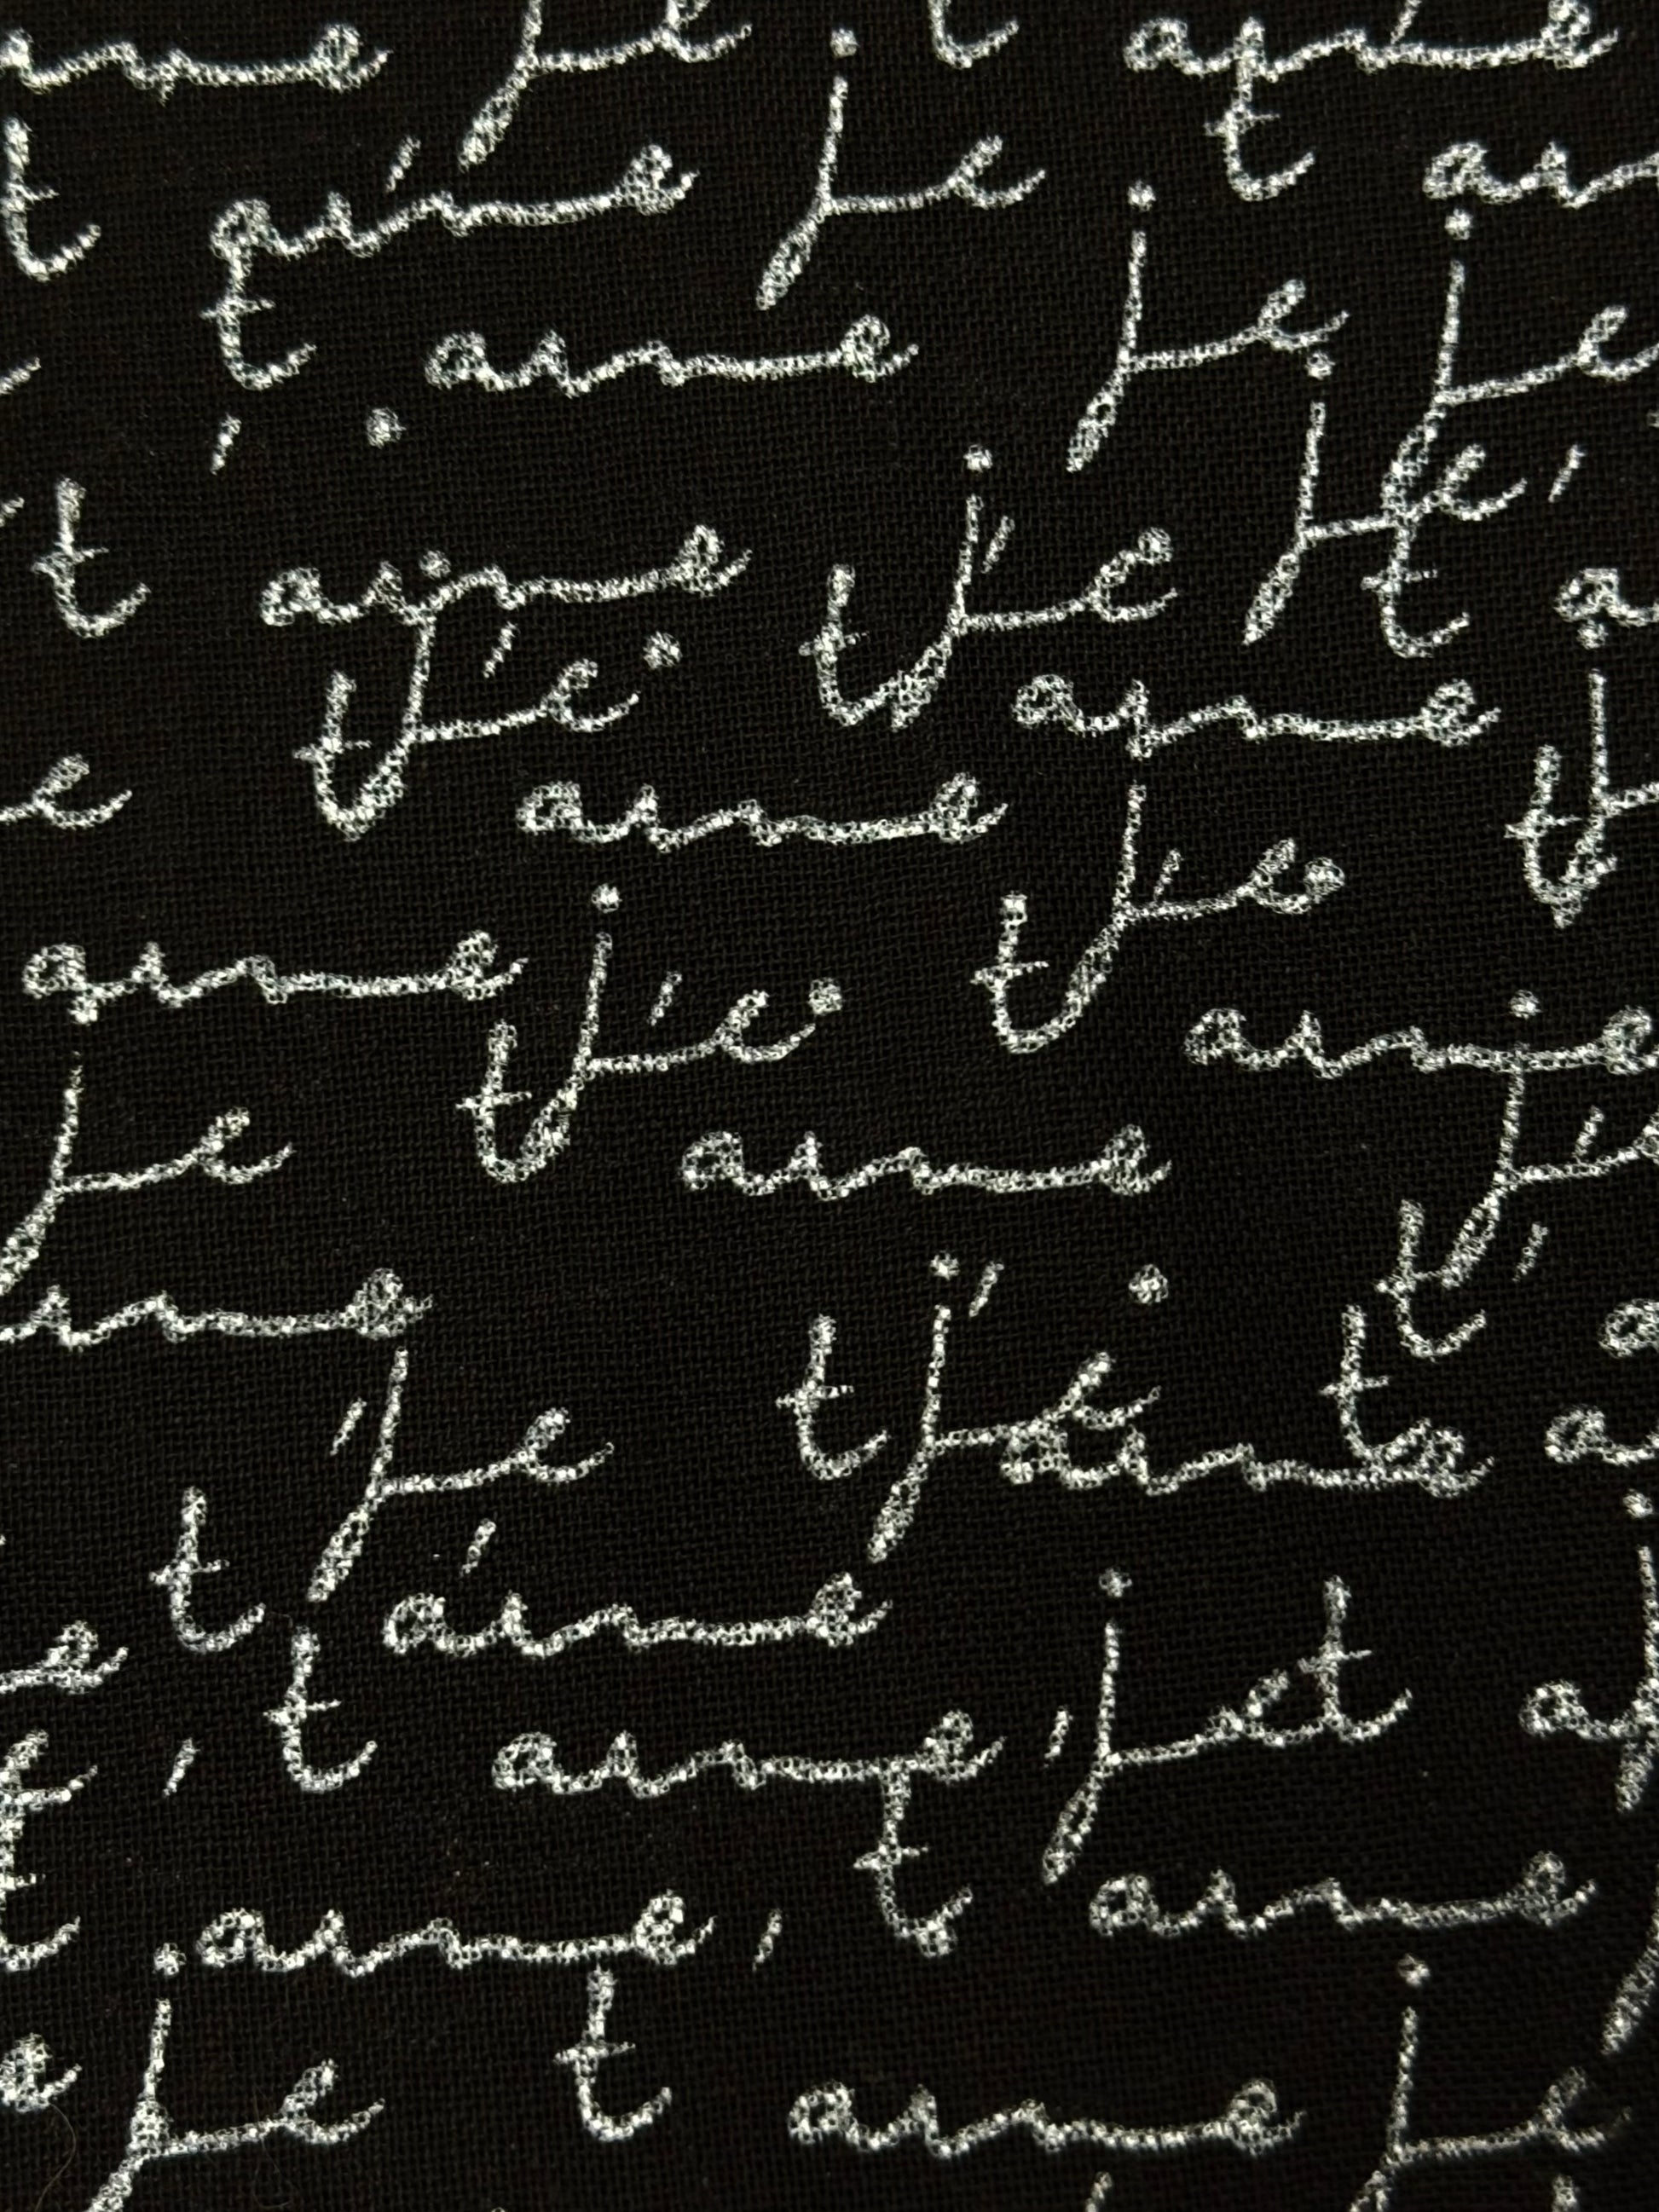 aime je t' aime
t' aime je t' aim
t' aime je je
t' aime t' je je t' a
e t' je aime t' j
t' aime je
aime t' je t' aime
je t' aime j'e
ime je t' je t' a
t' aime t' a
e t' aime je t' a
t' aime t' aime
t' aime, t' aime
e je t' aime je